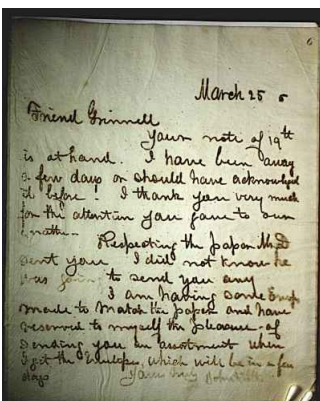 6
March 25 6
Friend Grinnell
Your note of 19th
is at hand. I have been away
a few days or should have acknowledged
it before! I thank you very much
for the attention you gave to our
matter.
Respecting the paper
sent you I did not know he
was to send you any
I am having some
made to match the paper and have
reserved to myself the pleasure of
sending you an assortment when
I get the envelopes, which will be in a few
days Yours truly